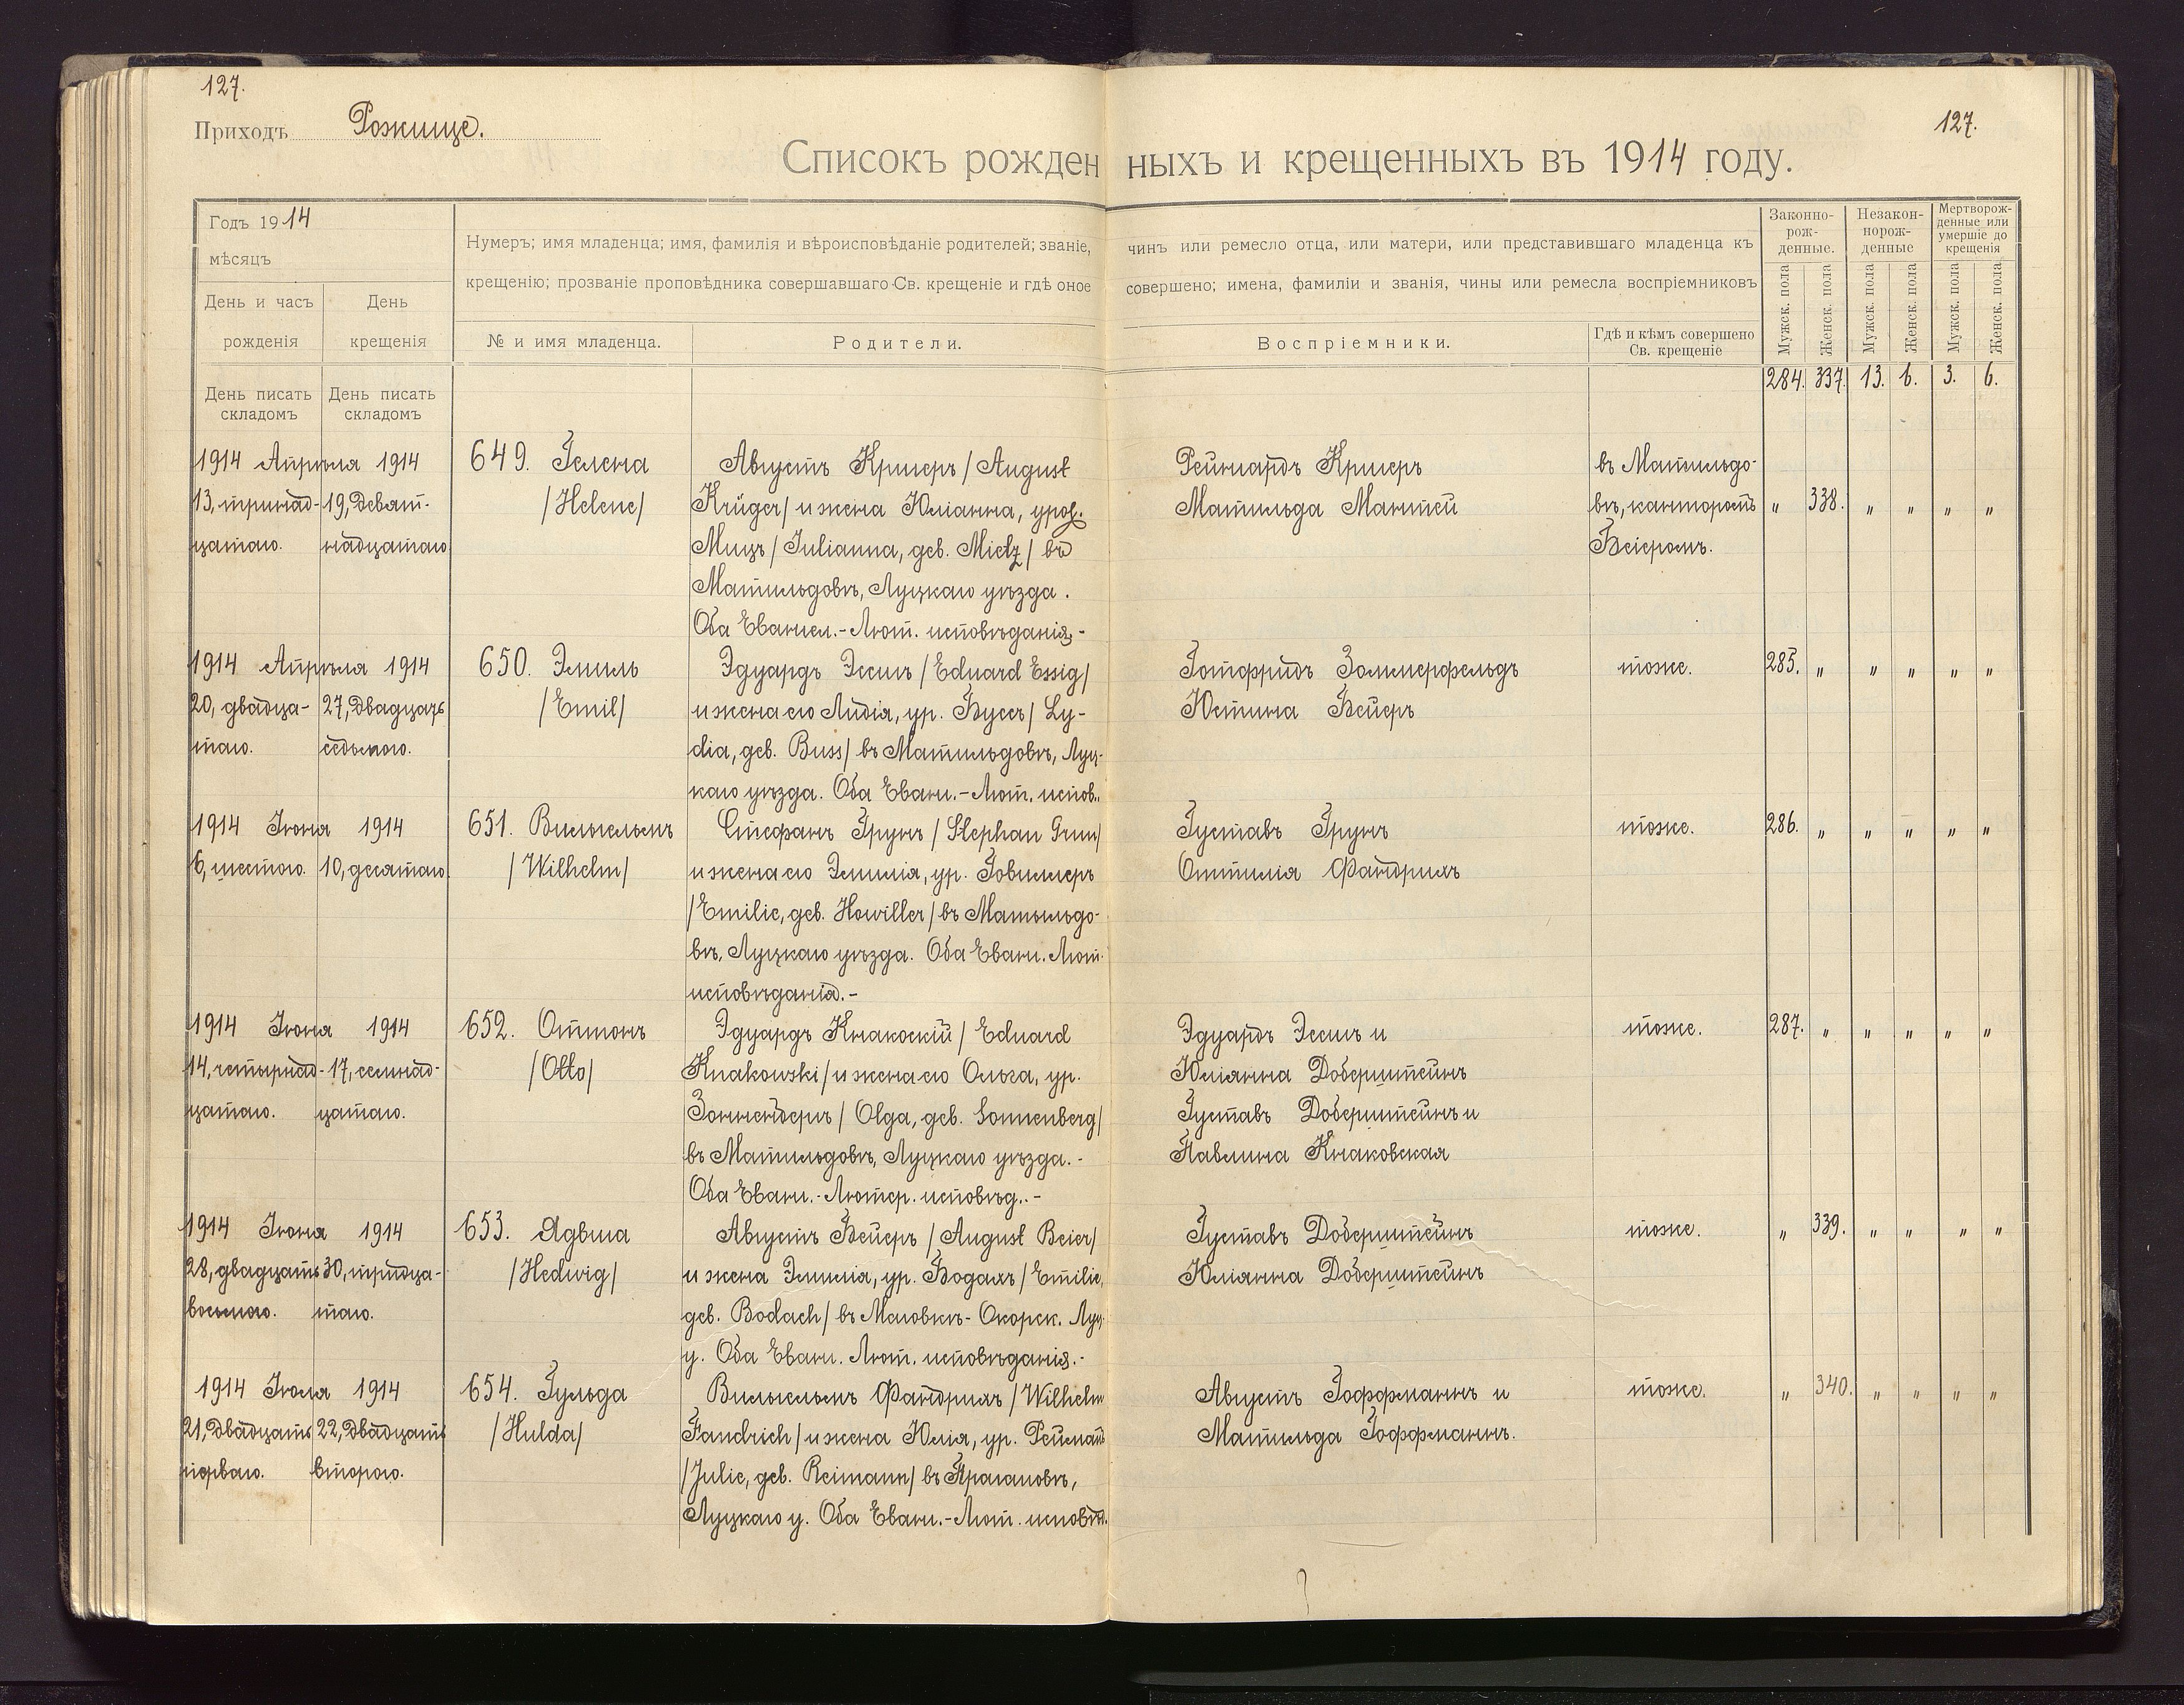 127.
127.
Приходъ Рожище.
Списокъ рожденныхъ и крещенныхъ въ 1914 году.
Годъ 1914
мѣсяцъ
День и часъ рожденія
День крещенія
Нумеръ; имя младенца; имя, фамилія и вѣроисповѣданіе родителей; званіе, чинъ или ремесло отца, или матери, или представившаго младенца къ
крещенію; прозваніе проповѣдника совершавшаго Св. крещеніе и гдѣ оное совершено; имена, фамиліи и званія, чины или ремесла воспріемниковъ
№ и имя младенца.
Родители.
Воспріемники.
Гдѣ и кѣмъ совершено Св. крещеніе
Законно-рож-денные.
Незакон-норож-денные
Мертворож-денные или умершіе до крещенія
Мужск. пола
Женск. пола
Мужск. пола
Женск. пола
Мужск. пола
Женск. пола
День писать складомъ
День писать складомъ
284. 337. 13. 6. 3. 6.
1914 Апрѣля 1914
13, тринад- 19, девят-
цатаго. надцатаго
649. Гелена
/Helene/
Августъ Кригеръ /August
Krüger/ и жена Юліанна, урож.
Мицъ /Julianna, geb. Mietz/ въ
Матильдовѣ, Луцкаго уѣзда.
Оба Евангел.-Лют. исповѣданія.-
Рейнгардъ Кригеръ
Матильда Мантей
въ Матильдо-
вѣ, канторомъ
Бейеромъ.
" 338. " " " "
1914 Апрѣля 1914
20, двадца- 27, двадцать
таго. седьмого.
650. Эмиль
/Emil/
Эдуардъ Эссигъ /Eduard Essig/
и жена его Лидія, ур. Буссъ /Ly-
dia, geb. Buss/ въ Матильдовѣ, Луц-
каго уѣзда. Оба Еванг.-Лют. испов..
Готфридъ Зоммерфельдъ
Юстина Бейеръ
тоже.
285. " " " " "
1914 Іюня 1914
6, шестого. 10, десятаго.
651. Вильгельмъ
/Wilhelm/
Стефанъ Грунъ /Stephan Grun/
и жена его Эмилія, ур. Говиллеръ
/Emilie, geb. Howiller/ въ Матильдо-
вѣ, Луцкаго уѣзда. Оба Еванг. Лют.
исповѣданія.-
Густавъ Грунъ
Оттилія Фандрихъ
тоже.
286. " " " " "
1914 Іюня 1914
14, четырнад- 17, семнад-
цатаго. цатаго.
652. Оттонъ
/Otto/
Эдуардъ Кнакоскій /Eduard
Knakowski/ и жена его Ольга, ур.
Зонненбергъ /Olga, geb. Sonnenberg/
въ Матильдовѣ, Луцкаго уѣзда.-
Оба Еванг.-Лютер. исповѣд..-
Эдуардъ Эссигъ и
Юліанна Доберштейнъ
Густавъ Доберштейнъ и
Павлина Кнаковская
тоже.
287. " " " " "
1914 Іюня 1914
28, двадцать 30, тридца-
восьмого. таго.
653. Ядвига
/Hedwig/
Августъ Бейеръ /August Beier/
и жена Эмилія, ур. Бодахъ /Emilie,
geb. Bodach/ въ Маговкѣ-Окорск. Луц.
у. Оба Еванг. Лют. исповѣданія.-
Густавъ Доберштейнъ
Юліанна Доберштейнъ
тоже.
" 339. " " " "
1914 Іюля 1914
21, двадцать 22, двадцать
перваго. второго.
654. Гульда
/Hulda/
Вильгельмъ Фандрихъ /Wilhelm
Fandrich/ и жена Юлія, ур. Рейманъ
/Julie, geb. Reimann/ въ
Луцкаго у. Оба Еванг.-Лют. исповѣд.
Августъ Гоффманнъ и
Матильда Гоффманнъ.
тоже.
" 340. " " " "